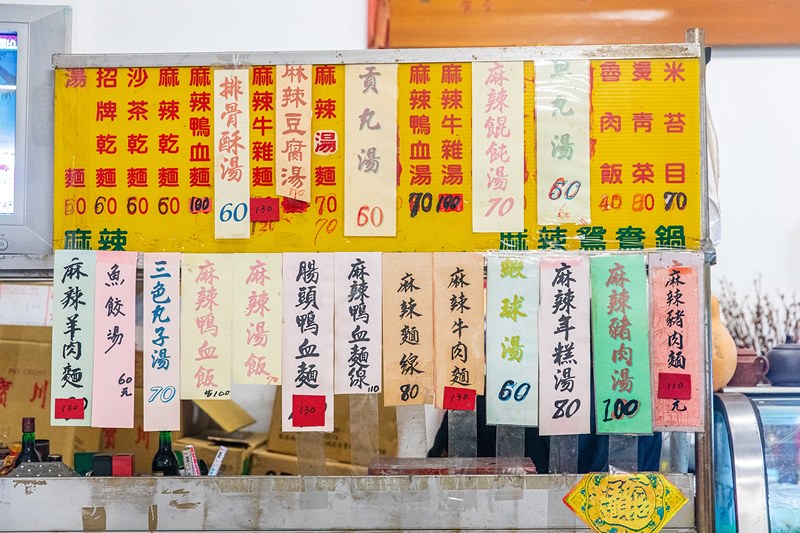 湯麵 60
招牌乾麵 60
沙茶乾麵 60
麻辣乾麵 60
麻辣鴨血麵 100
排骨酥湯 60
麻辣牛雜麵 130
麻辣豆腐湯
麻辣湯麵 70
70
貢丸湯 60
麻辣鴨血湯 70
麻辣牛雜湯 100
麻辣餛飩湯 70
魚丸湯 60
魯肉飯 40
燙青菜 80
米苔目 70
麻辣
麻辣鴛鴦鍋
麻辣羊肉麵 130
魚餃湯 60元
三色丸子湯 70
麻辣鴨血飯 100
麻辣湯飯 70
腸頭鴨血麵 130
麻辣鴨血麵線 110
麻辣麵線 80
麻辣牛肉麵 130
蝦球湯 60
麻辣年糕湯 80
麻辣豬肉湯 100
麻辣豬肉麵 110元